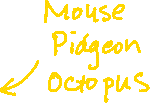 Mouse
Pidgeon
Octopus